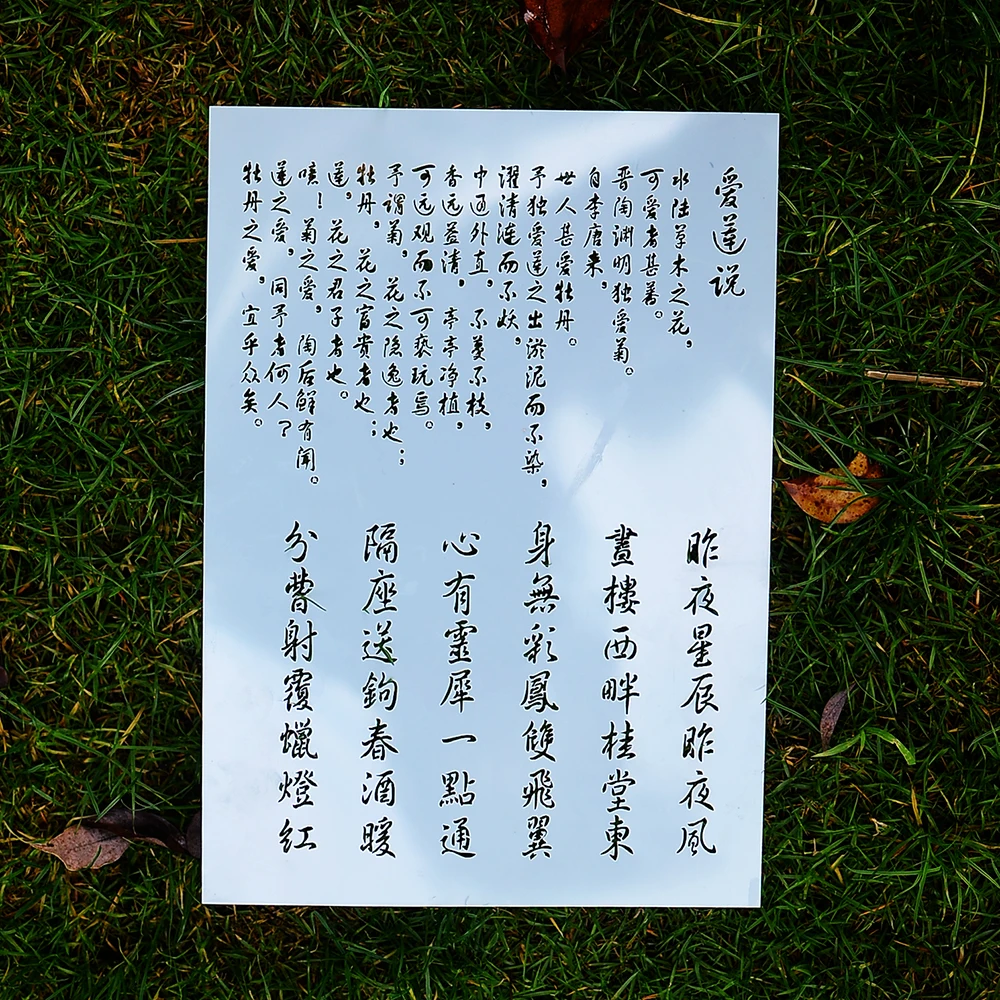 爱莲说
水陆草木之花，
可爱者甚蕃。
晋陶渊明独爱菊。
自李唐来，
世人甚爱牡丹。
予独爱莲之出淤泥而不染，
濯清涟而不妖，
中通外直，不蔓不枝，
香远益清，亭亭净植，
可远观而不可亵玩焉。
予谓菊，花之隐逸者也；
牡丹，花之富贵者也；
莲，花之君子者也。
噫！菊之爱，陶后鲜有闻。
莲之爱，同予者何人？
牡丹之爱，宜乎众矣。
昨夜星辰昨夜風
畫樓西畔桂堂東
身無彩鳳雙飛翼
心有靈犀一點通
隔座送鉤春酒暖
分曹射覆蠟燈紅